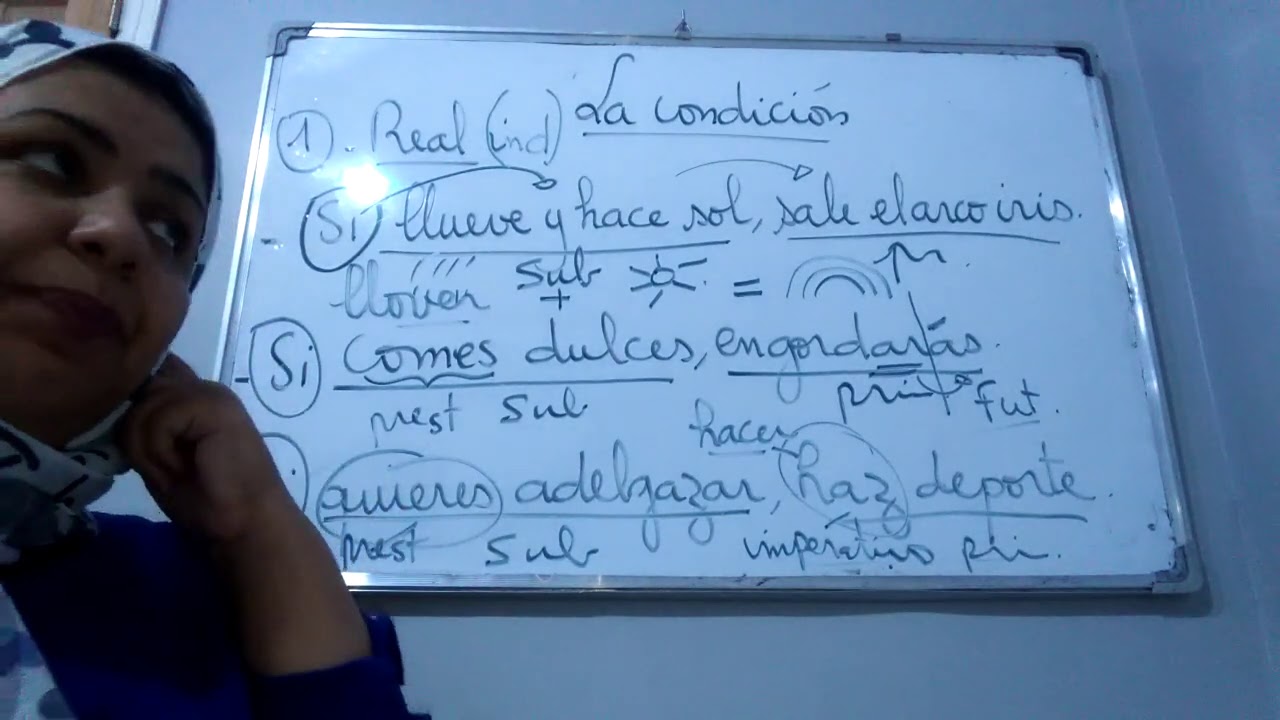 La condición
1. Real (ind)
- Si llueve y hace sol, sale el arco iris.
llover sub + = pri.
- Si comes dulces, engordarás.
prest sub pri fut.
hacer
quieres adelgazar, haz deporte.
prest sub imperativo pri.